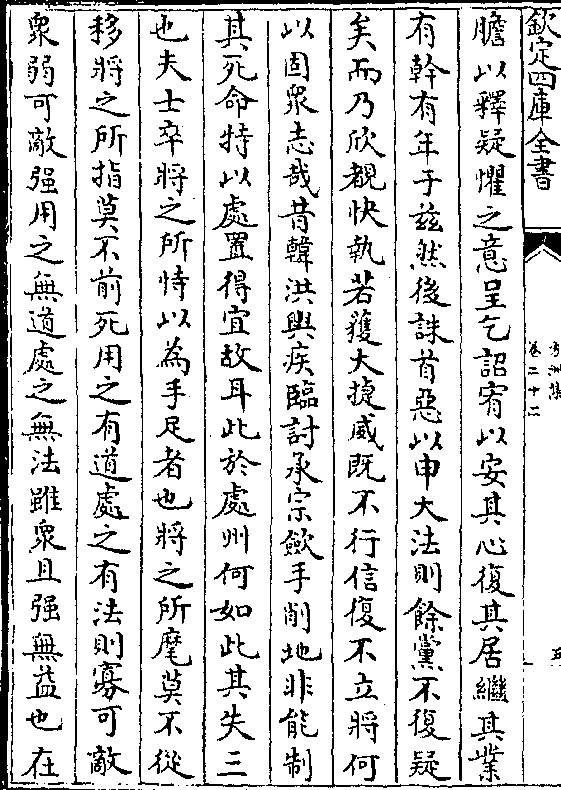 欽定四庫全書
方洲集
卷二十二
五
膽以釋疑懼之意呈乞詔宥以安其心復其居繼其業
有幹有年于兹然後誅首惡以申大法則餘黨不復疑
矣而乃欣覩快執若獲大捷威既不行信復不立將何
以固衆志哉昔韓洪輿疾臨討承宗歛手削地非能制
其死命特以處置得宜故耳此於處州何如此其失三
也夫士卒將之所恃以為手足者也將之所麾莫不從
移將之所指莫不前死用之有道處之有法則寡可敵
衆弱可敵强用之無道處之無法雖衆且强無益也在